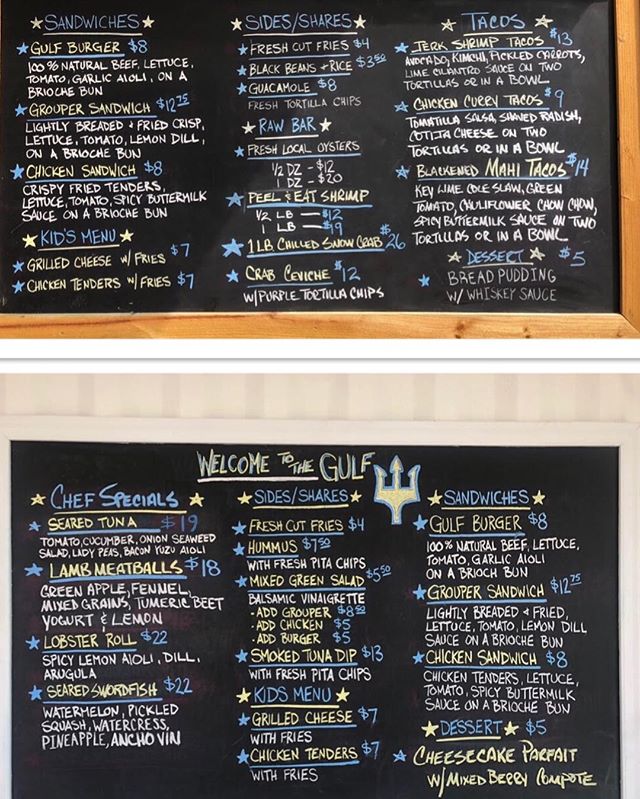 SANDWICHES
GULF BURGER $8
100% NATURAL BEEF, LETTUCE,
TOMATO, GARLIC AIOLI, ON A
BRIOCHE BUN
GROUPER SANDWICH $12.75
LIGHTLY BREADED & FRIED CRISP,
LETTUCE, TOMATO, LEMON DILL,
ON A BRIOCHE BUN
CHICKEN SANDWICH $8
CRISPY FRIED TENDERS,
LETTUCE, TOMATO, SPICY BUTTERMILK
SAUCE ON A BRIOCHE BUN
KID'S MENU
GRILLED CHEESE W/ FRIES $7
CHICKEN TENDERS W/ FRIES $7
SIDES/SHARES
FRESH CUT FRIES $4
BLACK BEANS + RICE $3.50
GUACAMOLE $8
FRESH TORTILLA CHIPS
RAW BAR
FRESH LOCAL OYSTERS
1/2 DZ - $12
1 DZ - $20
PEEL & EAT SHRIMP
1/2 LB — $12
1 LB — $19
1 LB CHILLED SNOW CRAB $26
CRAB CEVICHE $12
W/ PURPLE TORTILLA CHIPS
TACOS
JERK SHRIMP TACOS $13
AVOCADO, KIMCHI, PICKLED CARROTS,
LIME CILANTRO SAUCE ON TWO
TORTILLAS OR IN A BOWL
CHICKEN CURRY TACOS $9
TOMATILLA SALSA, SHAVED RADISH,
COTIJA CHEESE ON TWO
TORTILLAS OR IN A BOWL
BLACKENED MAHI TACOS $14
KEY LIME COLE SLAW, GREEN
TOMATO, CAULIFLOWER CHOW CHOW,
SPICY BUTTERMILK SAUCE ON TWO
TORTILLAS OR IN A BOWL
DESSERT $5
BREAD PUDDING
W/ WHISKEY SAUCE
WELCOME TO THE GULF
CHEF SPECIALS
SEARED TUNA $19
TOMATO, CUCUMBER, ONION SEAWEED
SALAD, LADY PEAS, BACON YUZU AIOLI
LAMB MEATBALLS $18
GREEN APPLE, FENNEL,
MIXED GRAINS, TUMERIC BEET
YOGURT & LEMON
LOBSTER ROLL $22
SPICY LEMON AIOLI, DILL,
ARUGULA
SEARED SWORDFISH $22
WATERMELON, PICKLED
SQUASH, WATERCRESS,
PINEAPPLE, ANCHO VIN
SIDES/SHARES
FRESH CUT FRIES $4
HUMMUS $7.50
WITH FRESH PITA CHIPS
MIXED GREEN SALAD $5.50
BALSAMIC VINAIGRETTE
- ADD GROUPER $8.50
- ADD CHICKEN $5
- ADD BURGER $5
SMOKED TUNA DIP $13
WITH FRESH PITA CHIPS
KIDS MENU
GRILLED CHEESE $7
WITH FRIES
CHICKEN TENDERS $7
WITH FRIES
SANDWICHES
GULF BURGER $8
100% NATURAL BEEF, LETTUCE,
TOMATO, GARLIC AIOLI
ON A BRIOCH BUN
GROUPER SANDWICH $12.75
LIGHTLY BREADED & FRIED,
LETTUCE, TOMATO, LEMON DILL
SAUCE ON A BRIOCHE BUN
CHICKEN SANDWICH $8
CHICKEN TENDERS, LETTUCE,
TOMATO, SPICY BUTTERMILK
SAUCE ON A BRIOCHE BUN
DESSERT $5
CHEESECAKE PARFAIT
W/ MIXED BERRY COMPOTE